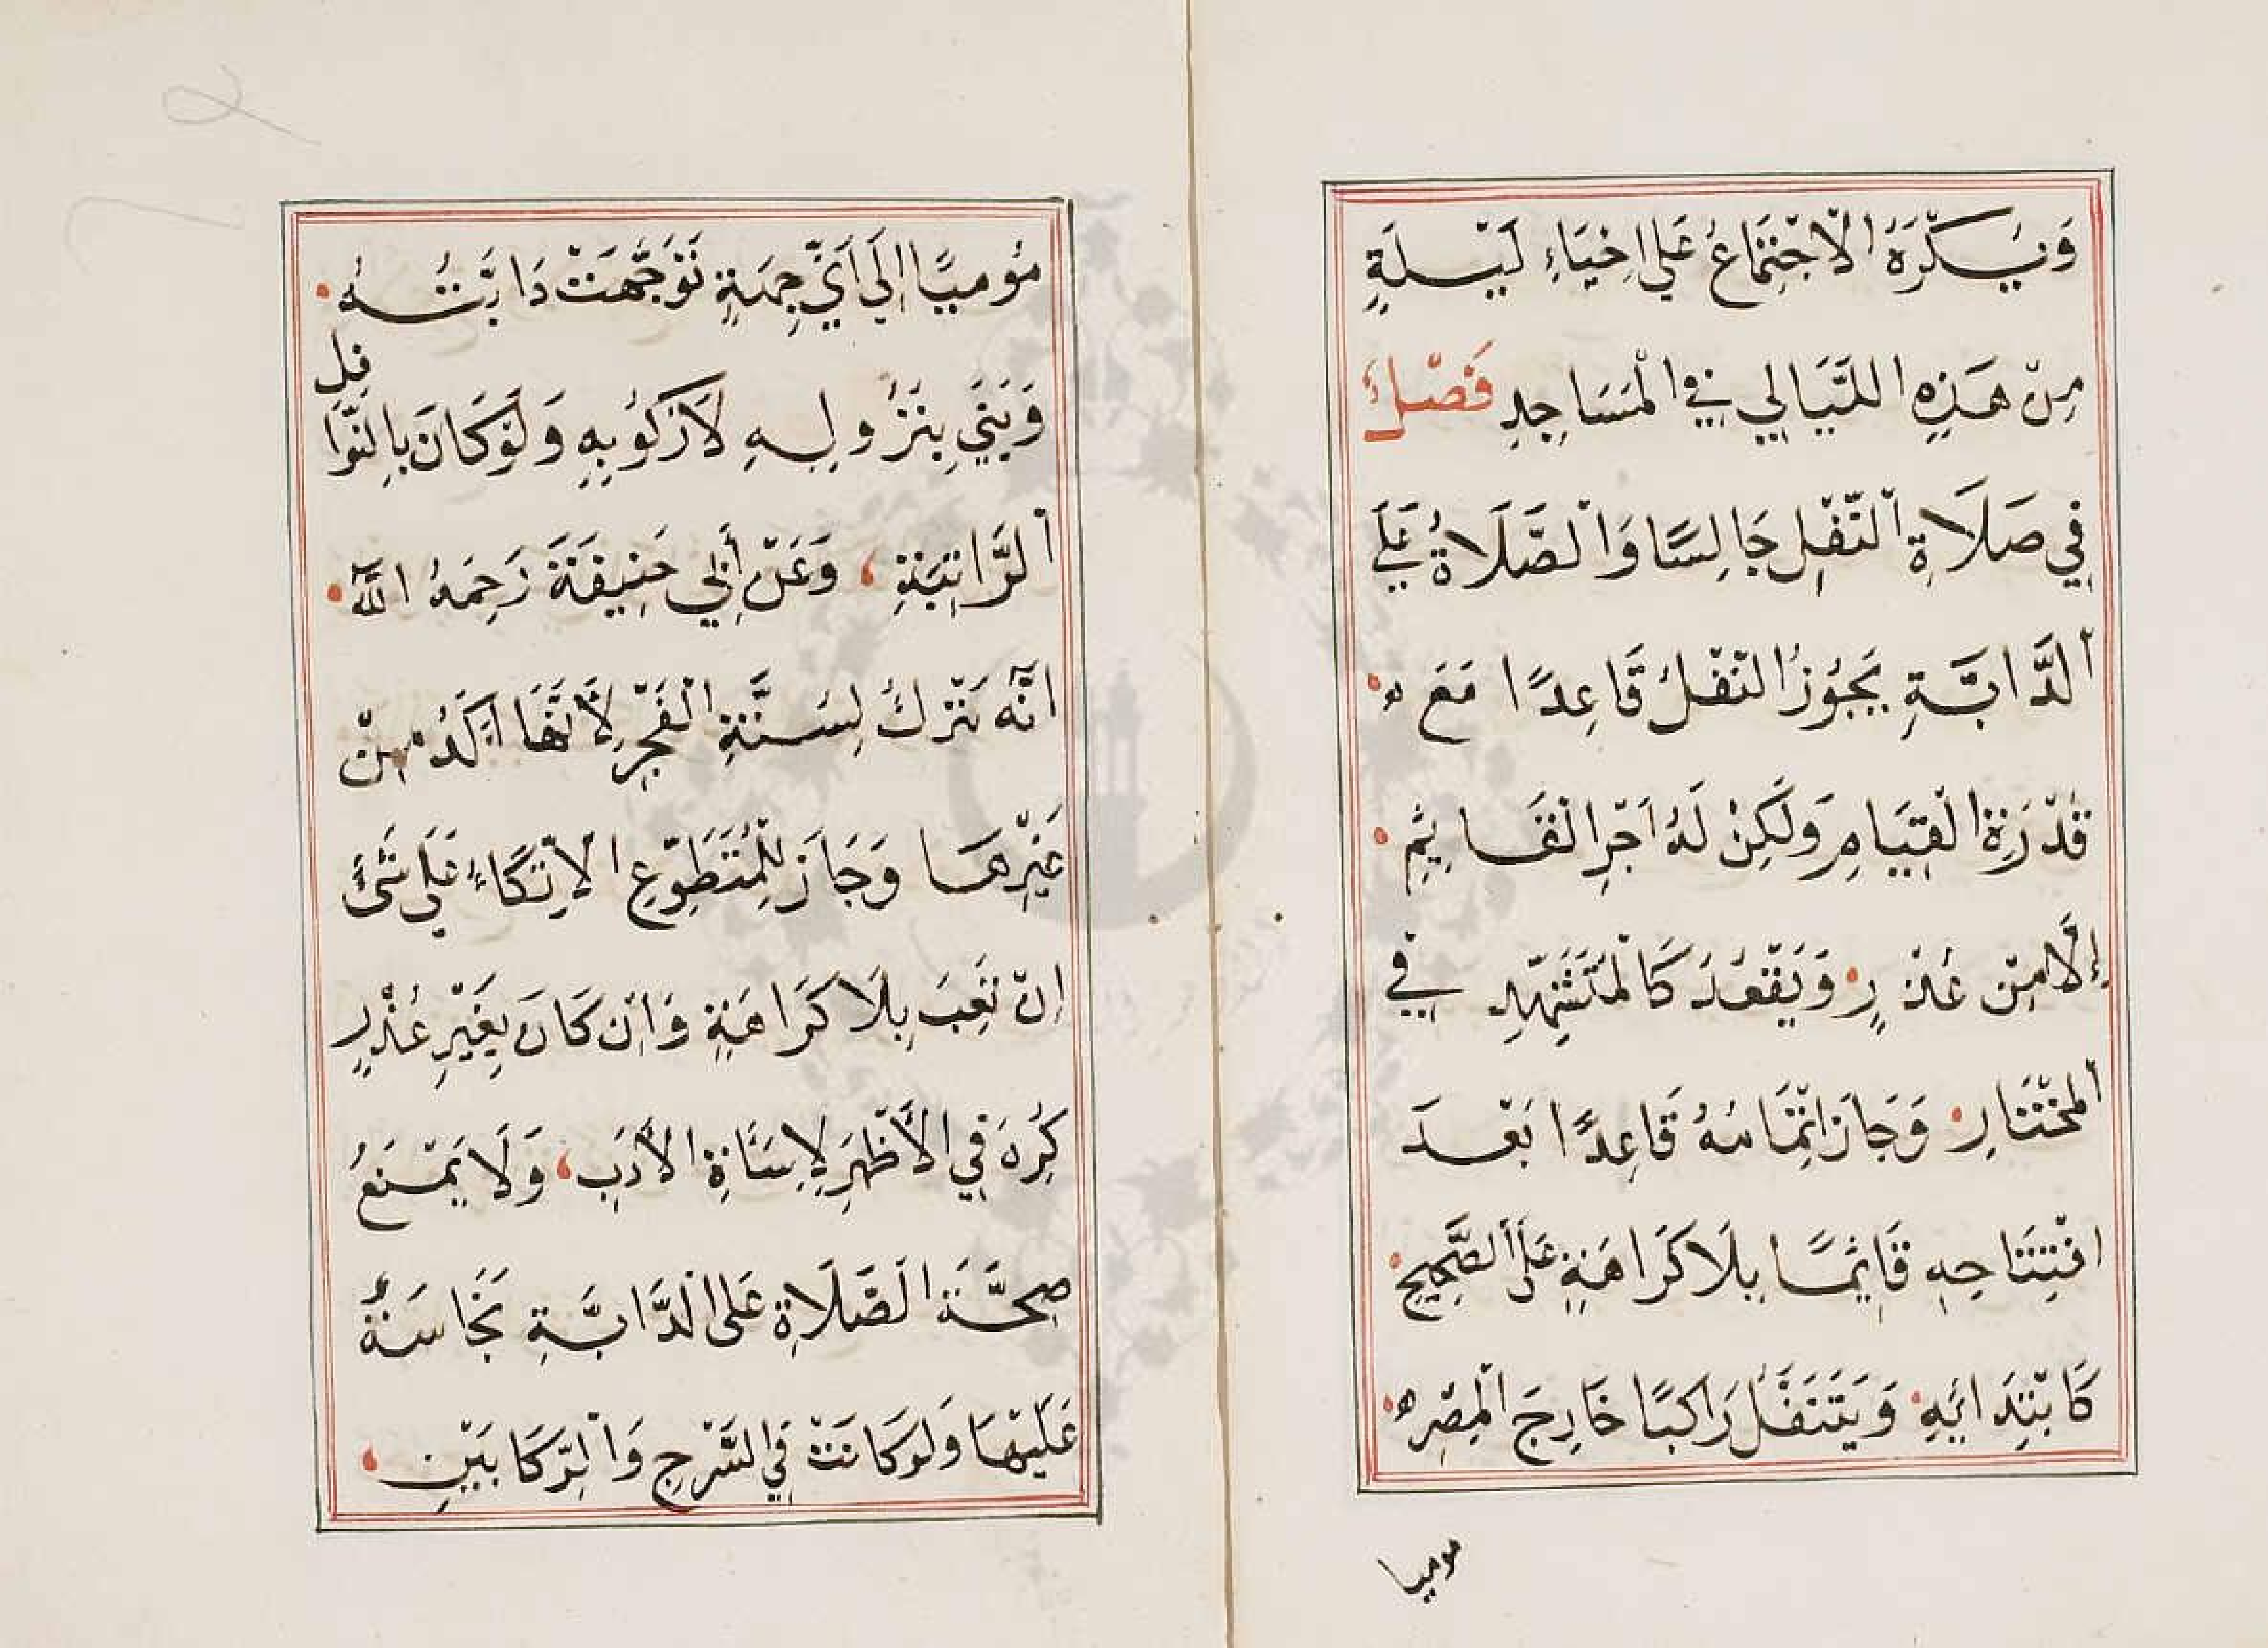 وَيُكْرَهُ الْاجْتِمَاعُ عَلي اِحْيَاءِ لَيْلَةٍ
مِنْ هَذِهِ اللَّيَالِي فِي الْمَسَاجِدِ فَصْلٌ
فِي صَلَاةِ الْنَّفْلِ جَالِسًا وَالْصَّلَاةُ عَلَي
الْدَّابَّةِ يَجُوزُ النَّفْلُ قَاعِدًا مَعَ
قُدْرَةِ الْقِيَامِ وَلَكِنْ لَهُ اَجْرِ الْقَائِمِ
إِلَّا مِنْ عُذْرٍ وَيَقْعُدَ كَالْمُتَشَهِّدِ فِي
الْمُخْتَارِ وَجَازَ اِتْمَامُهُ قَاعِدًا بَعْدَ
افْتِتَاحِهِ قَائِمًا بِلَا كَرَاهَةٍ عَلَى الْصَّحِيحِ
كَابْتِدَائِهِ وَيَتَنَفَّلُ رَاكِبًا خَارِجَ الْمِصْرِ
موميا
مُومِيًا اِلَى اَيِّ جِهَةٍ تَوَجَّهَتْ دَابَّتُهُ
وَبَنَي بِنُزُولِهِ لَا رَكُوبِهِ وَلَوْ كَانَ بِالنَّوَا
فِلِ
الرَّاتِبَةِ وَعَنْ أَبِي حَنِيفَةَ رَحِمَهُ اللَّه
انَّه يَنْزِلُ لِسُنَّةِ الْفَجْرِ لِأَنَّهَا اَكَدُ مِنْ
غَيْرِهَا وَجَازَ لِلْمُتَطَوِّعِ الْاِتِّكَاءُ عَلَي شَيْءٍ
اِنْ تَعِبَ بِلَا كَرَاهَةٍ وَاِنْ كَانَ بِغَيْرِ عُذْرٍ
كُرِهَ فِي الْأَظْهَرِ لِاِسَاءَةِ الْأَدَبِ وَلَا يَمْنَعُ
صِحَّةَ الْصَّلَاةِ عَلى الْدَّابَّةِ نَجَاسَةٌ
عَلَيْهَا وَلَوْ كَانَتْ فِي السَّرْجِ وَالْرِّكَابَيْنِ